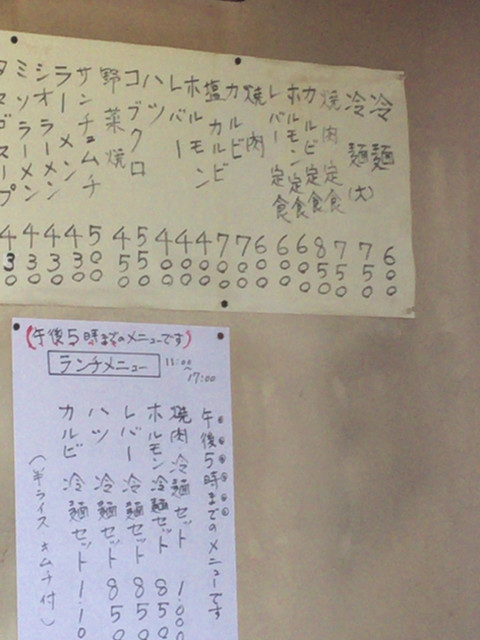 冷麺 600
冷麺(大) 750
焼肉定食 750
カルビ定食 850
ホルモン定食 600
レバー定食 600
焼肉 600
カルビ 700
塩カルビ 700
ホルモン 400
レバー 400
ハツ 400
コブクロ 550
野菜焼 450
サンチュ 500
ラーメン 430
シオラーメン 430
ミソラーメン 430
タマゴスープ 430
(午後5時までのメニューです)
ランチメニュー 11:00~17:00
午後5時までのメニューです
焼肉 冷麺セット 1.000
ホルモン 冷麺セット 850
レバー 冷麺セット 850
ハツ 冷麺セット 850
カルビ 冷麺セット 1.10
(半ライス キムチ付)